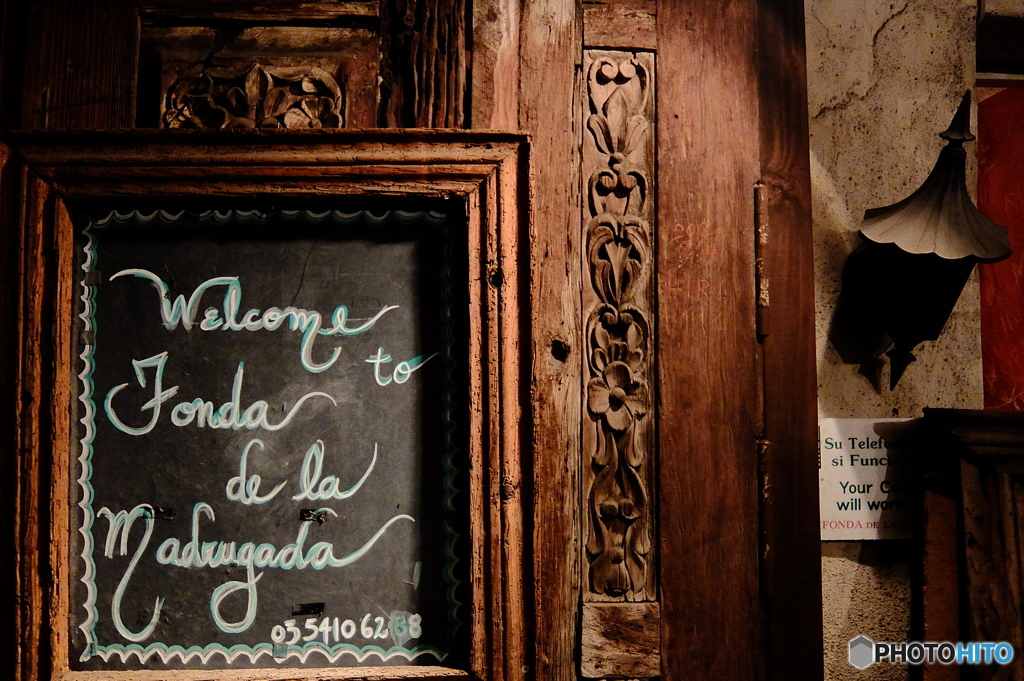 Welcome
to
Fonda
de la
Madrugada
03 5410 6288
Su Telefo
si Func
Your C
will wor
FONDA DE LA
PHOTOHITO